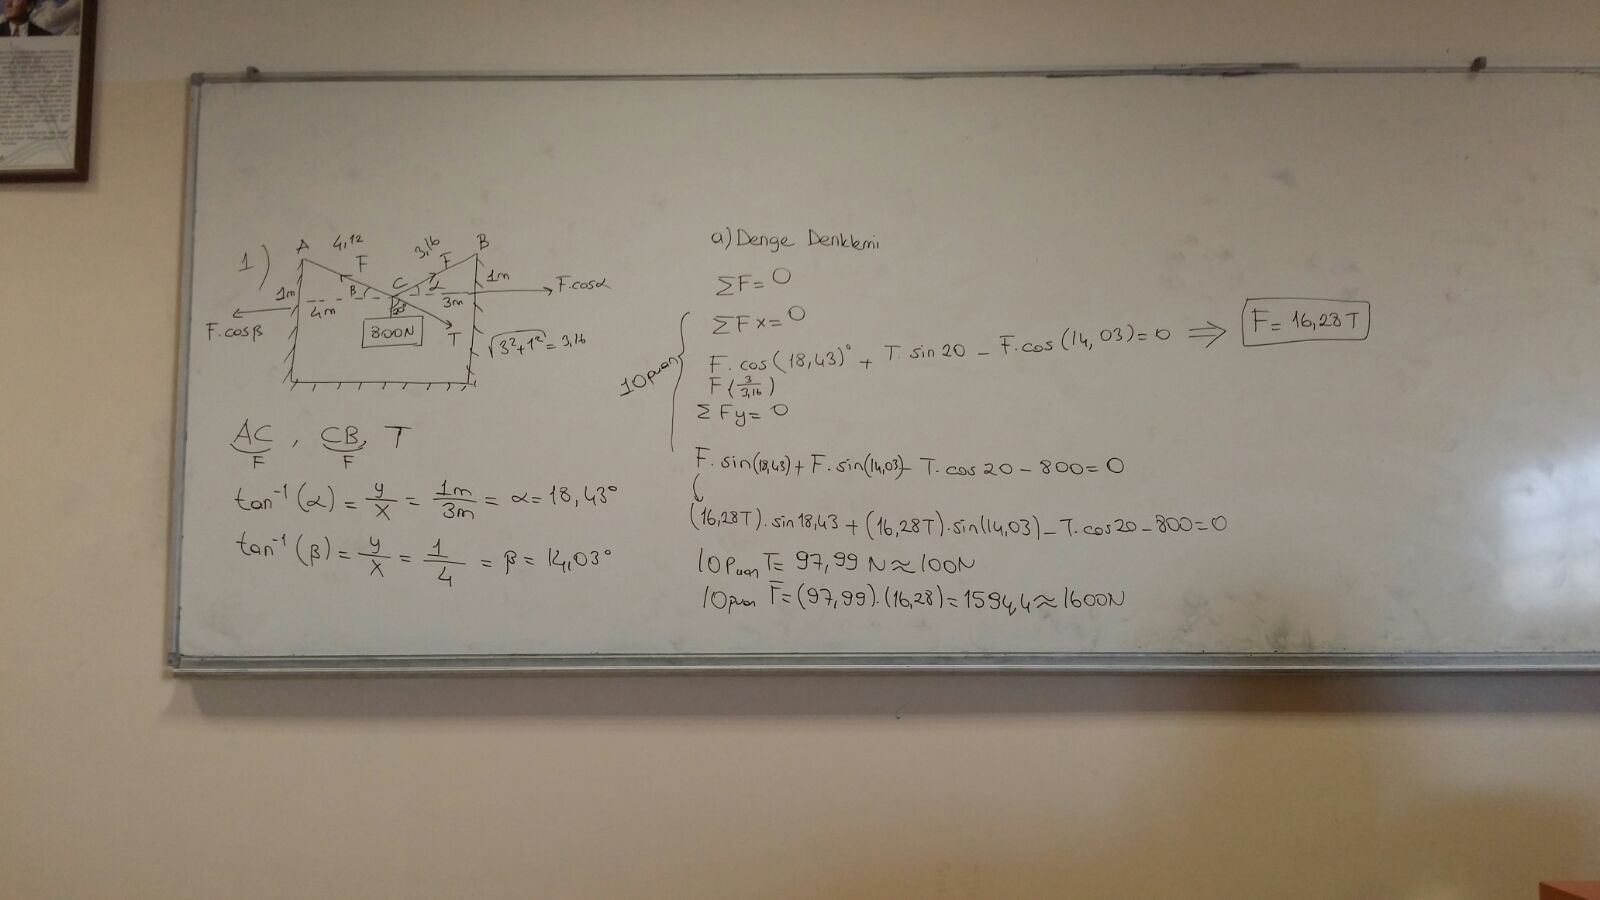 1)
A 4,12 3,16 B
F F
1m B C α 1m F.cosα
4m 20° 3m
F.cosβ 800N T
√3²+1² = 3,16
AC , CB, T
F F
tan⁻¹(α) = y/x = 1m/3m = α = 18,43°
tan⁻¹(β) = y/x = 1/4 = β = 14,03°
a) Denge Denklemi
ΣF = 0
ΣFx = 0
10puan
F.cos(18,43)° + T.sin20 - F.cos(14,03) = 0 ⇒ F = 16,28T
F.(3/3,16)
ΣFy = 0
F.sin(18,43) + F.sin(14,03) - T.cos20 - 800 = 0
(16,28T).sin18,43 + (16,28T).sin(14,03) - T.cos20 - 800 = 0
10Puan T = 97,99 N ≈ 100N
10puan F = (97,99).(16,28) = 1594,4 ≈ 1600N